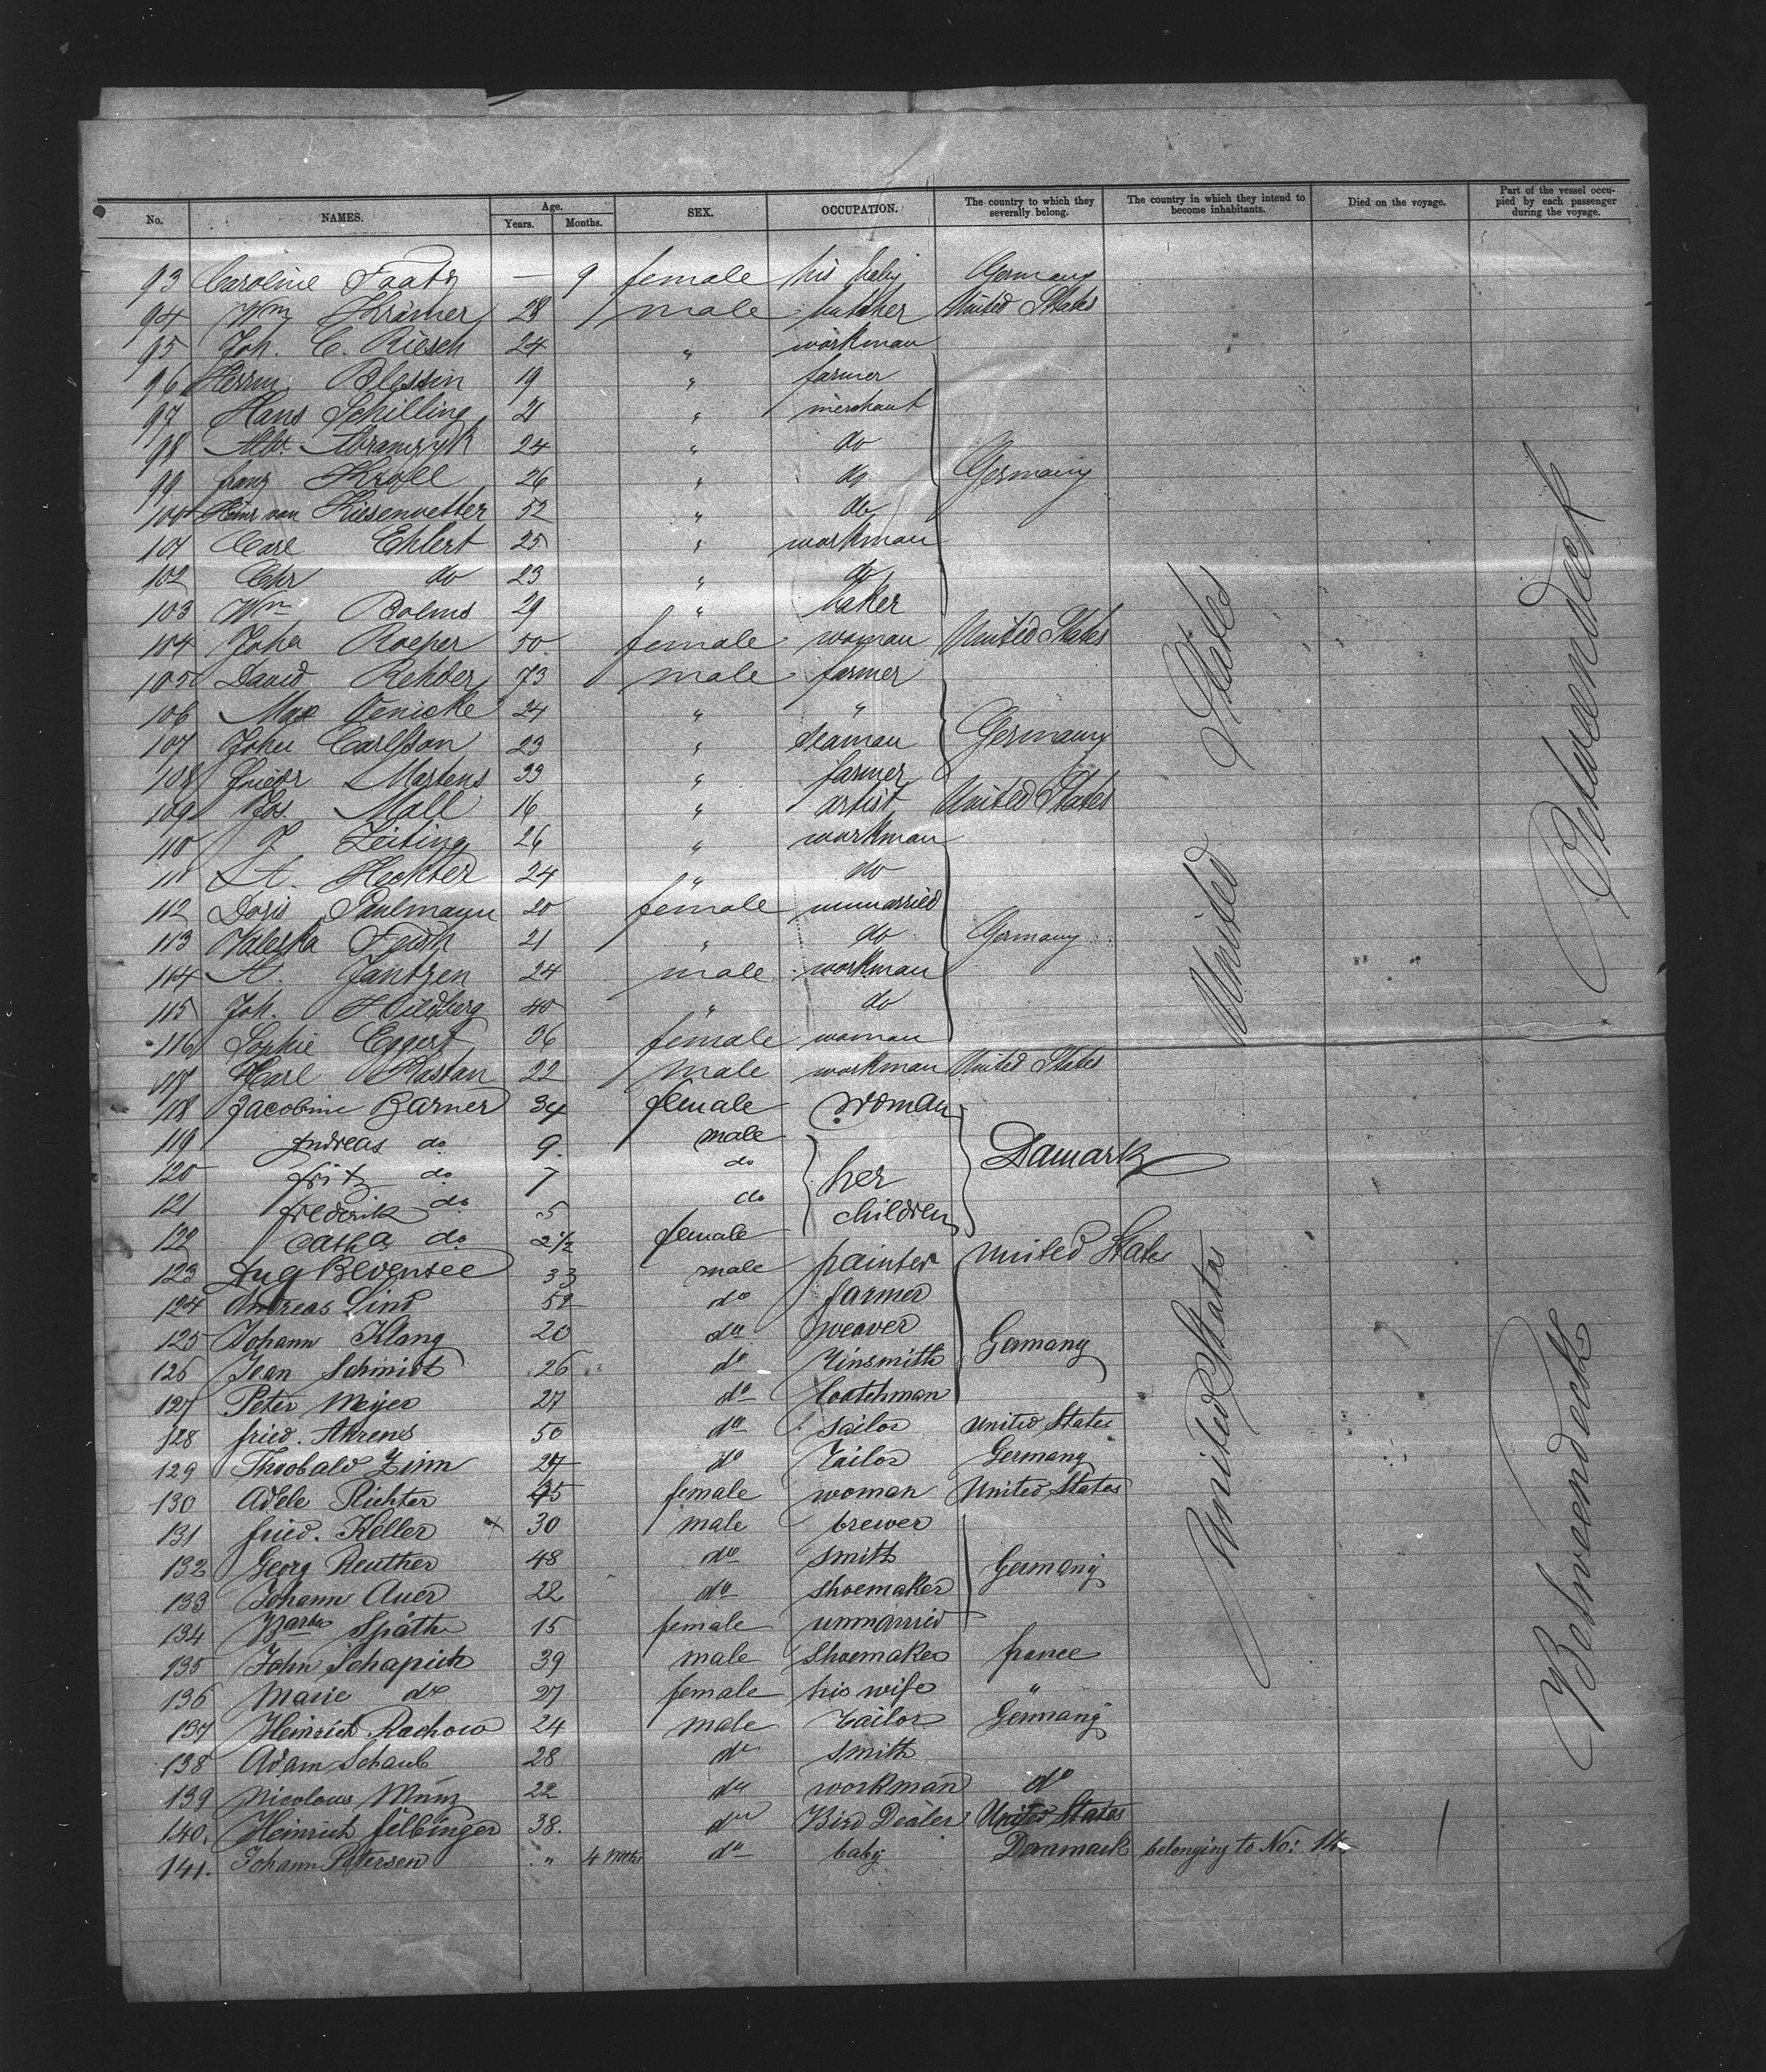 No. NAMES. Age. Years. Months. SEX. OCCUPATION. The country to which they severally belong. The country in which they intend to become inhabitants. Died on the voyage. Part of the vessel occupied by each passenger during the voyage.
93 Caroline Faatz — 9 female his baby Germany
94 Wm Krämer 28 male butcher United States
95 Joh. C. Riesch 24 " workman
96 Herrm. Blessin 19 " farmer
97 Hans Schilling 21 " merchant
98 Abramzyk 24 " do
99 Franz Kroll 26 " do Germany
100 Heinr von Kiesenwetter 52 " do
101 Carl Ehlert 25 " workman
102 Chr do 23 " do
103 Wm Bolms 29 " baker
104 Joha Roeper 50 female woman United States
105 David Rehder 73 male farmer
106 Max Oenicke 24 " "
107 John Carlsson 23 " seaman Germany
108 Friedr Martens 33 " farmer
109 Jos. Mall 16 " artist United States
110 J Zeiting 26 " workman
111 A. Heckter 24 " do
112 Doris Paulmann 20 female unmarried
113 Valeska 21 " do Germany
114 A. Jantzen 24 male workman
115 Joh. Hildberg 40 " do
116 Sophie Eggert 36 female woman
117 Karl Kastan 22 male workman United States
118 Jacobine Barner 34 female woman
119 Andreas do 9. male
120 Fritz do 7 do her Damark
121 Frederik do 5 do children
122 do 2½ female
123 Aug Bevensee 33 male painter United States
124 Andreas Lind 52 do farmer
125 Johann Klang 20 do weaver Germany
126 Jean Schmidt 26 do Tinsmith
127 Peter Meyer 27 do Coatchman
128 fried. Ahrens 50 do sailor United States
129 Theobald Zinn 27 do Tailor Germany
130 Adele Richter 45 female woman United States
131 fried. Keller x 30 male brewer
132 Georg Reuther 48 do smith Germany
133 Johann Auer 22 do shoemaker
134 Barba Späth 15 female unmarried
135 John Schapich 39 male Shoemaker france
136 Marie do 27 female his wife "
137 Heinrich Rachow 24 male Tailor Germany
138 Adam Schaub 28 do smith
139 Nicolaus Münz 22 do workman do
140. Heinrich Selbinger 38. do Bird Dealer United States
141. Johann Petersen " 4 Mths do baby Denmark belonging to No: 14
United States
United States
Betweendeck
Betweendeck